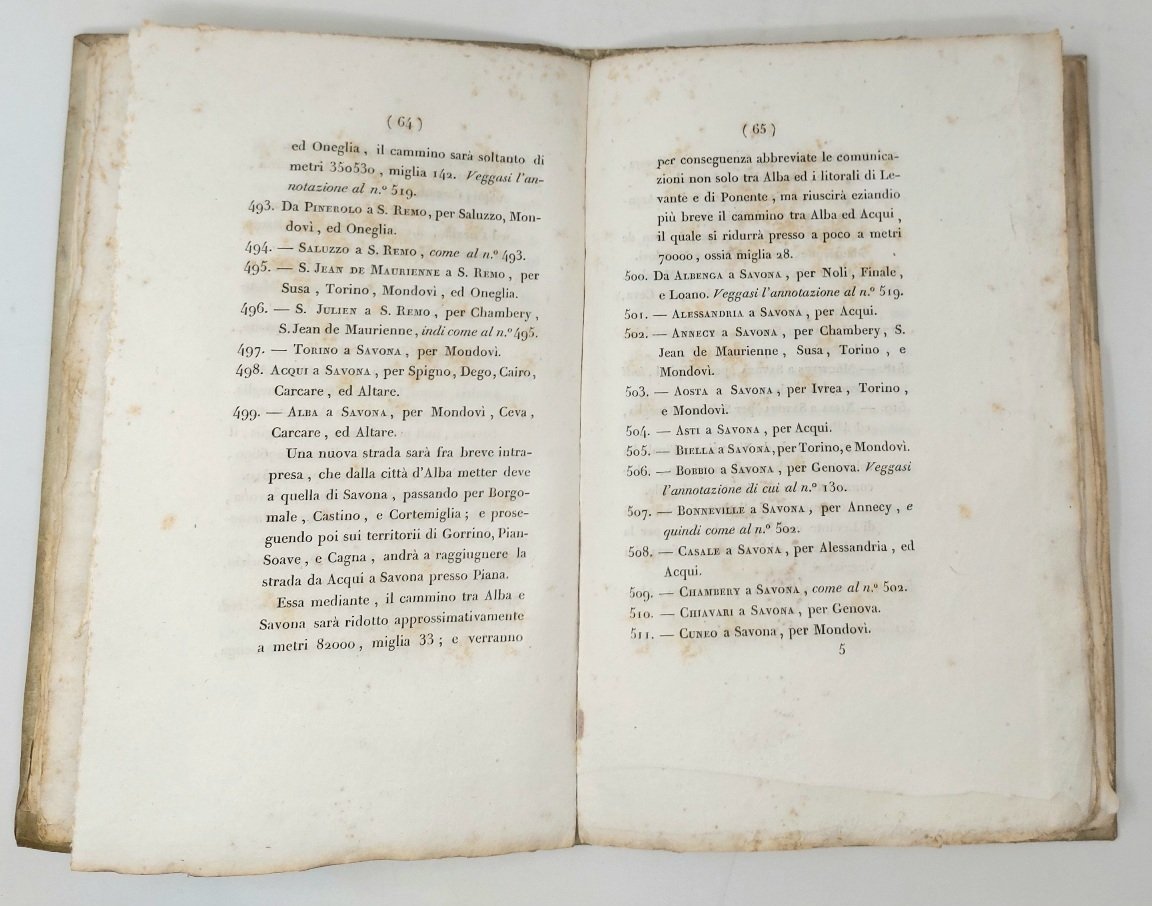 ( 64 )
ed Oneglia , il cammino sarà soltanto di
metri 35o53o , miglia 142. Veggasi l'an-
notazione al n.º 519.
493. Da PINEROLO a S. REMO, per Saluzzo, Mon-
dovì , ed Oneglia.
494. — SALUZZO a S. REMO , come al n.º 493.
495. — S. JEAN DE MAURIENNE a S. REMO , per
Susa , Torino , Mondovì , ed Oneglia.
496. — S. JULIEN a S. REMO , per Chambery ,
S. Jean de Maurienne , indi come al n.º 495.
497. — TORINO a SAVONA , per Mondovì.
498. ACQUI a SAVONA , per Spigno, Dego, Cairo,
Carcare , ed Altare.
499. — ALBA a SAVONA , per Mondovì , Ceva ,
Carcare , ed Altare.
Una nuova strada sarà fra breve intra-
presa , che dalla città d'Alba metter deve
a quella di Savona , passando per Borgo-
male , Castino , e Cortemiglia ; e prose-
guendo poi sui territorii di Gorrino, Pian-
Soave , e Cagna , andrà a raggiugnere la
strada da Acqui a Savona presso Piana.
Essa mediante , il cammino tra Alba e
Savona sarà ridotto approssimativamente
a metri 82000 , miglia 33 ; e verranno
( 65 )
per conseguenza abbreviate le comunica-
zioni non solo tra Alba ed i litorali di Le-
vante e di Ponente , ma riuscirà eziandio
più breve il cammino tra Alba ed Acqui ,
il quale si ridurrà presso a poco a metri
70000 , ossia miglia 28.
500. Da ALBENGA a SAVONA , per Noli , Finale ,
e Loano. Veggasi l'annotazione al n.º 519.
501. — ALESSANDRIA a SAVONA , per Acqui.
502. — ANNECY a SAVONA , per Chambery , S.
Jean de Maurienne , Susa , Torino , e
Mondovì.
503. — AOSTA a SAVONA , per Ivrea , Torino ,
e Mondovì.
504. — ASTI a SAVONA , per Acqui.
505. — BIELLA a SAVONA, per Torino, e Mondovì.
506. — BOBBIO a SAVONA , per Genova. Veggasi
l'annotazione di cui al n.º 130.
507. — BONNEVILLE a SAVONA , per Annecy , e
quindi come al n.º 502.
508. — CASALE a SAVONA , per Alessandria , ed
Acqui.
509. — CHAMBERY a SAVONA , come al n.º 502.
510. — CHIAVARI a SAVONA , per Genova.
511. — CUNEO a Savona , per Mondovì.
5